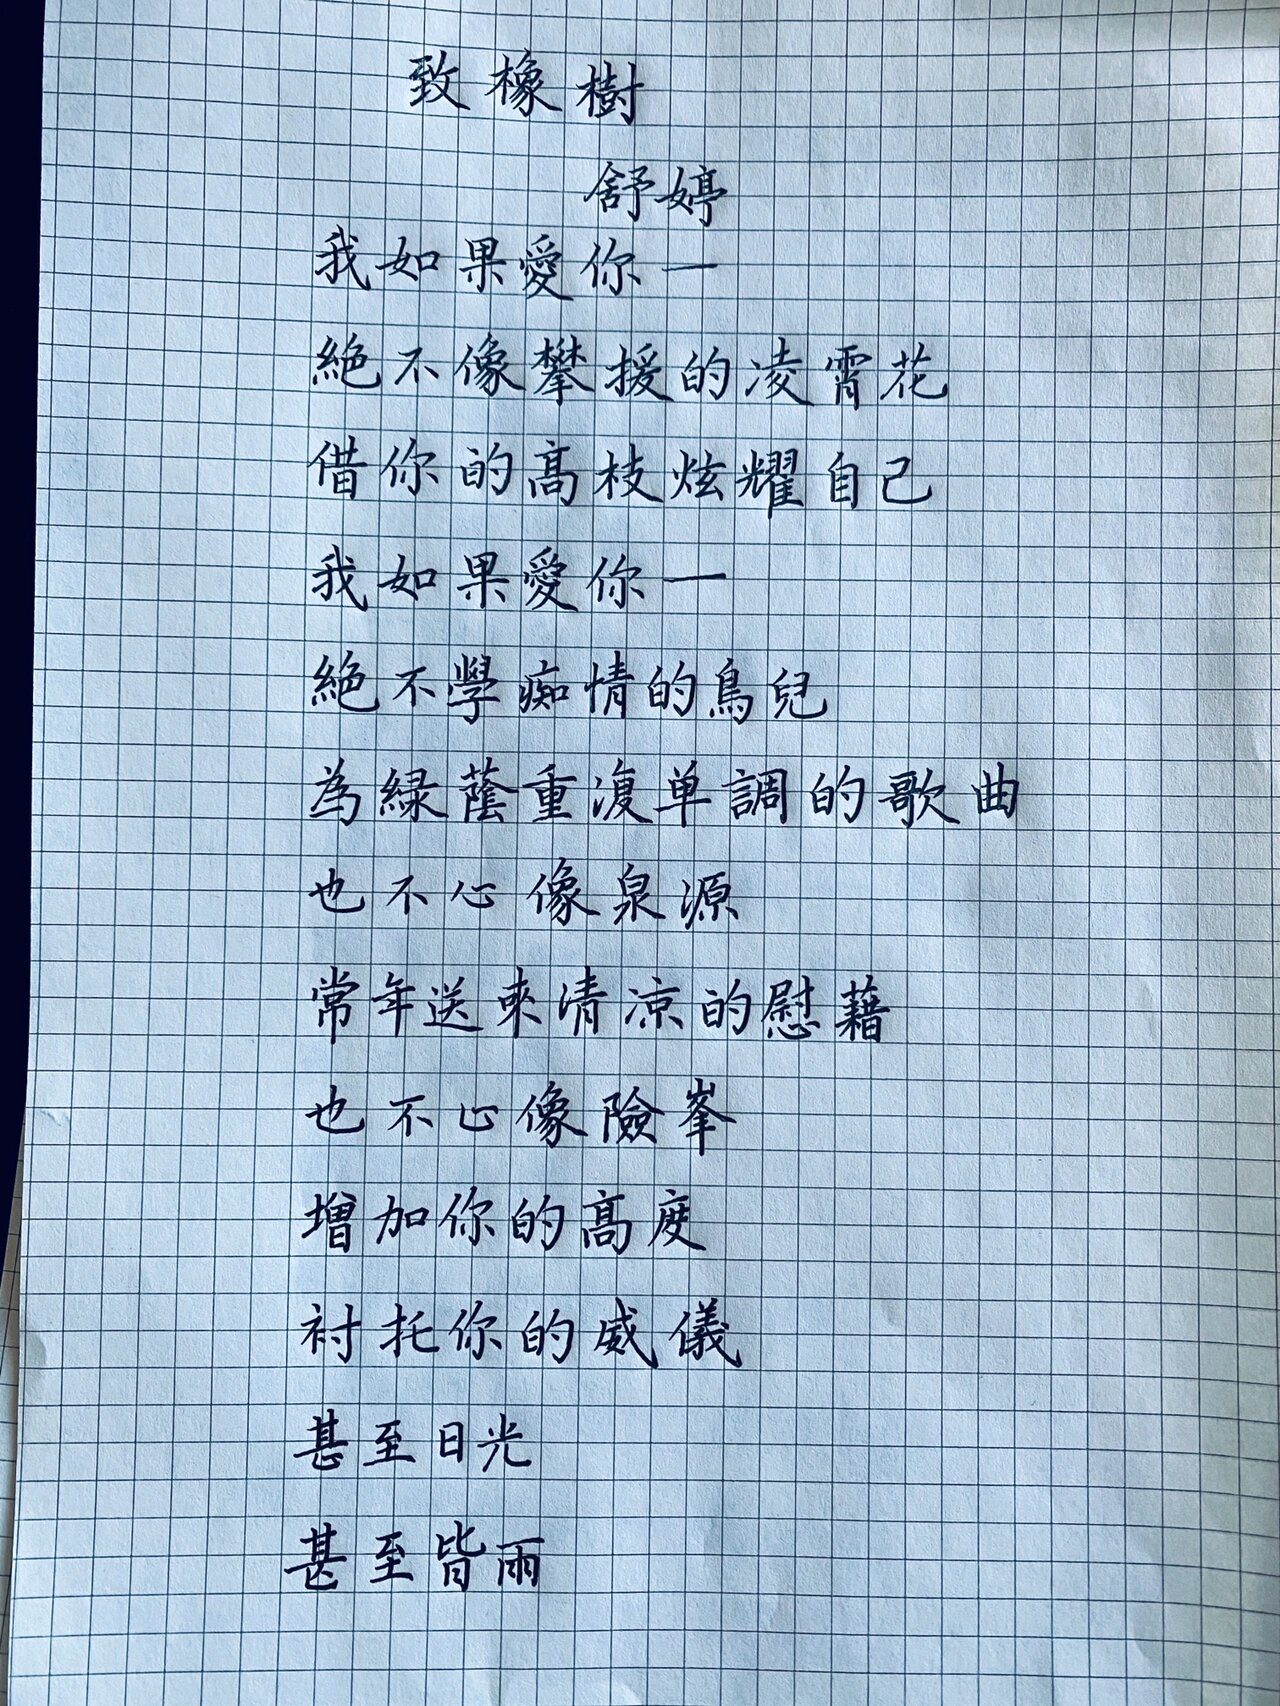 致橡樹
舒婷
我如果愛你一
絕不像攀援的凌霄花
借你的高枝炫耀自己
我如果愛你一
絕不學痴情的鳥兒
為綠蔭重復单調的歌曲
也不心像泉源
常年送來清凉的慰藉
也不心像險峯
增加你的高度
衬托你的威儀
甚至日光
甚至皆雨